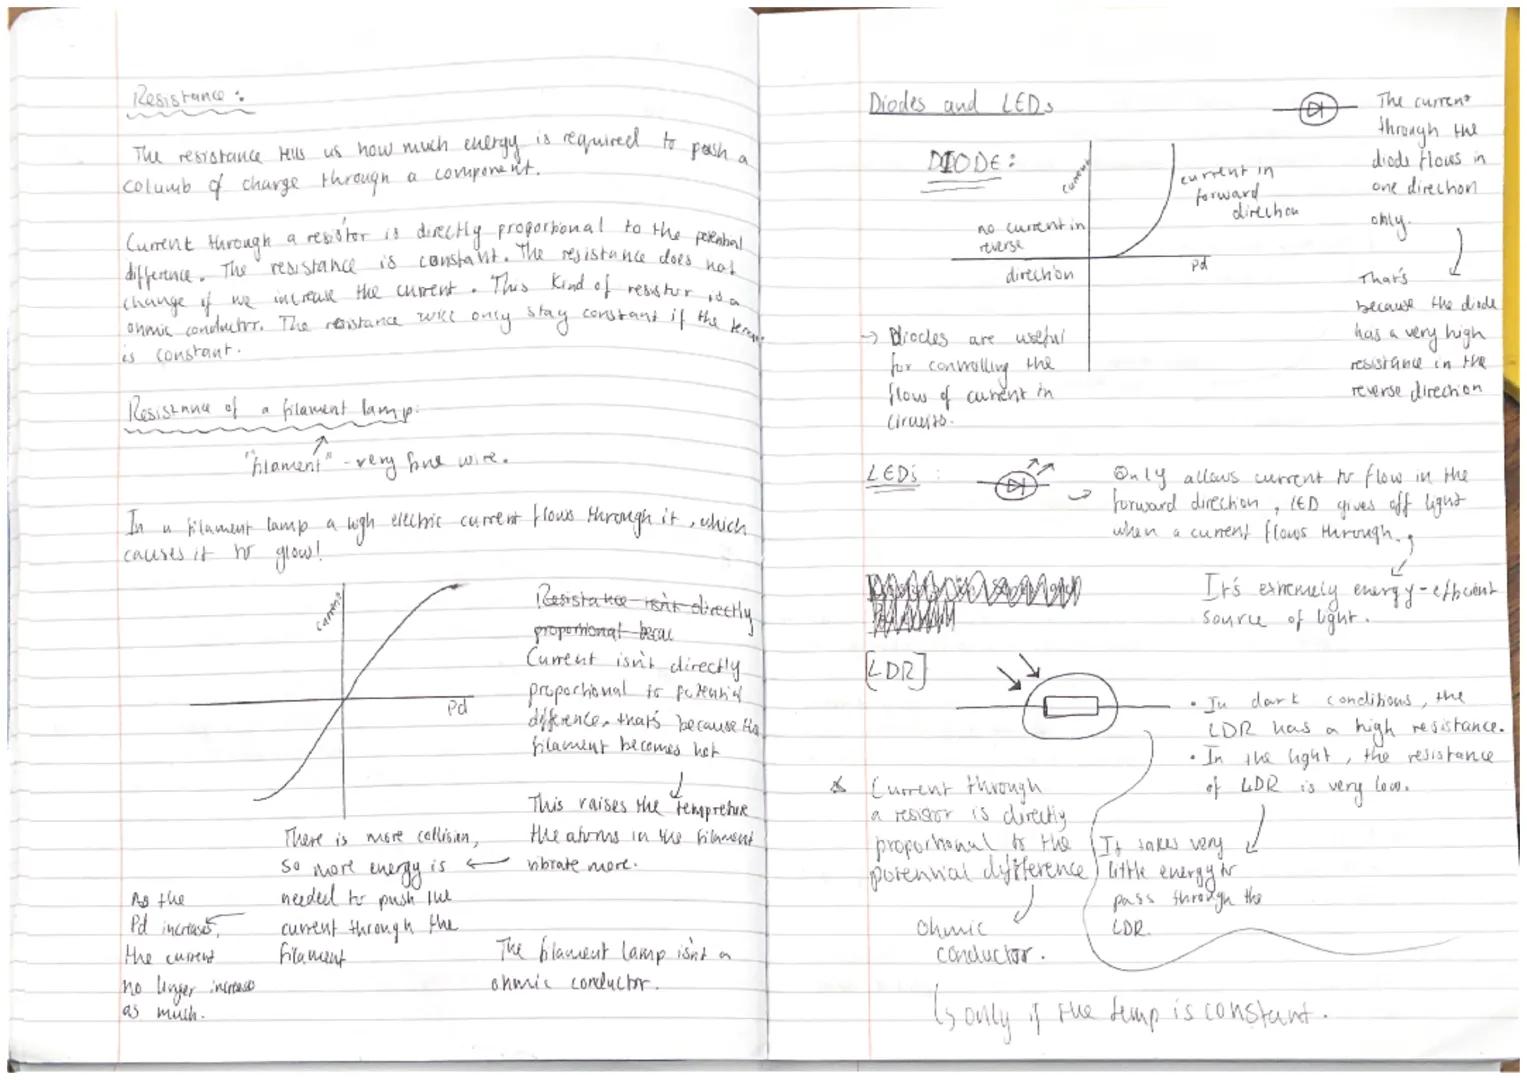 Resistance :
The resistance tells us how much energy is required to push a
columb of charge through a component.
Current through a resistor is directly proportional to the potential
difference. The resistance is constant. The resistance does not
change if we increase the current. This kind of resistor is a
ohmic conductor. The resistance will only stay constant if the
is constant.
Resistance of a filament lamp:
"filament" - very fine wire.
In a filament lamp a high electric current flows through it, which
causes it to glow!
current
Pd
Resistance isn't directly
proportional becau
Current isn't directly
proportional to potential
difference, that's because the
filament becomes hot
This raises the tempreture
the atoms in the filament
vibrate more.
There is more collision,
so more energy is
needed to push the
current through the
filament
As the
Pd increases,
the current
no longer increase
as much.
The filament lamp isn't a
ohmic conductor.
Diodes and LEDs
DIODE:
current
current in
forward
direction
no current in
reverse
direction
Pd
The current
through the
diode flows in
one direction
only.
That's
because the diode
has a very high
resistance in the
reverse direction
→ Diodes are useful
for controlling the
flow of current in
circuits.
LEDs :
Only allows current to flow in the
forward direction, LED gives off light
when a current flows through.
It's extremely energy-efficient
source of light.
[LDR]
• In dark conditions, the
LDR has a high resistance.
• In the light, the resistance
of LDR is very low.
It takes very
little energy to
pass through the
LDR.
Current through
a resistor is directly
proportional to the
potential difference
Ohmic
conductor.
↳ only if the temp is constant.